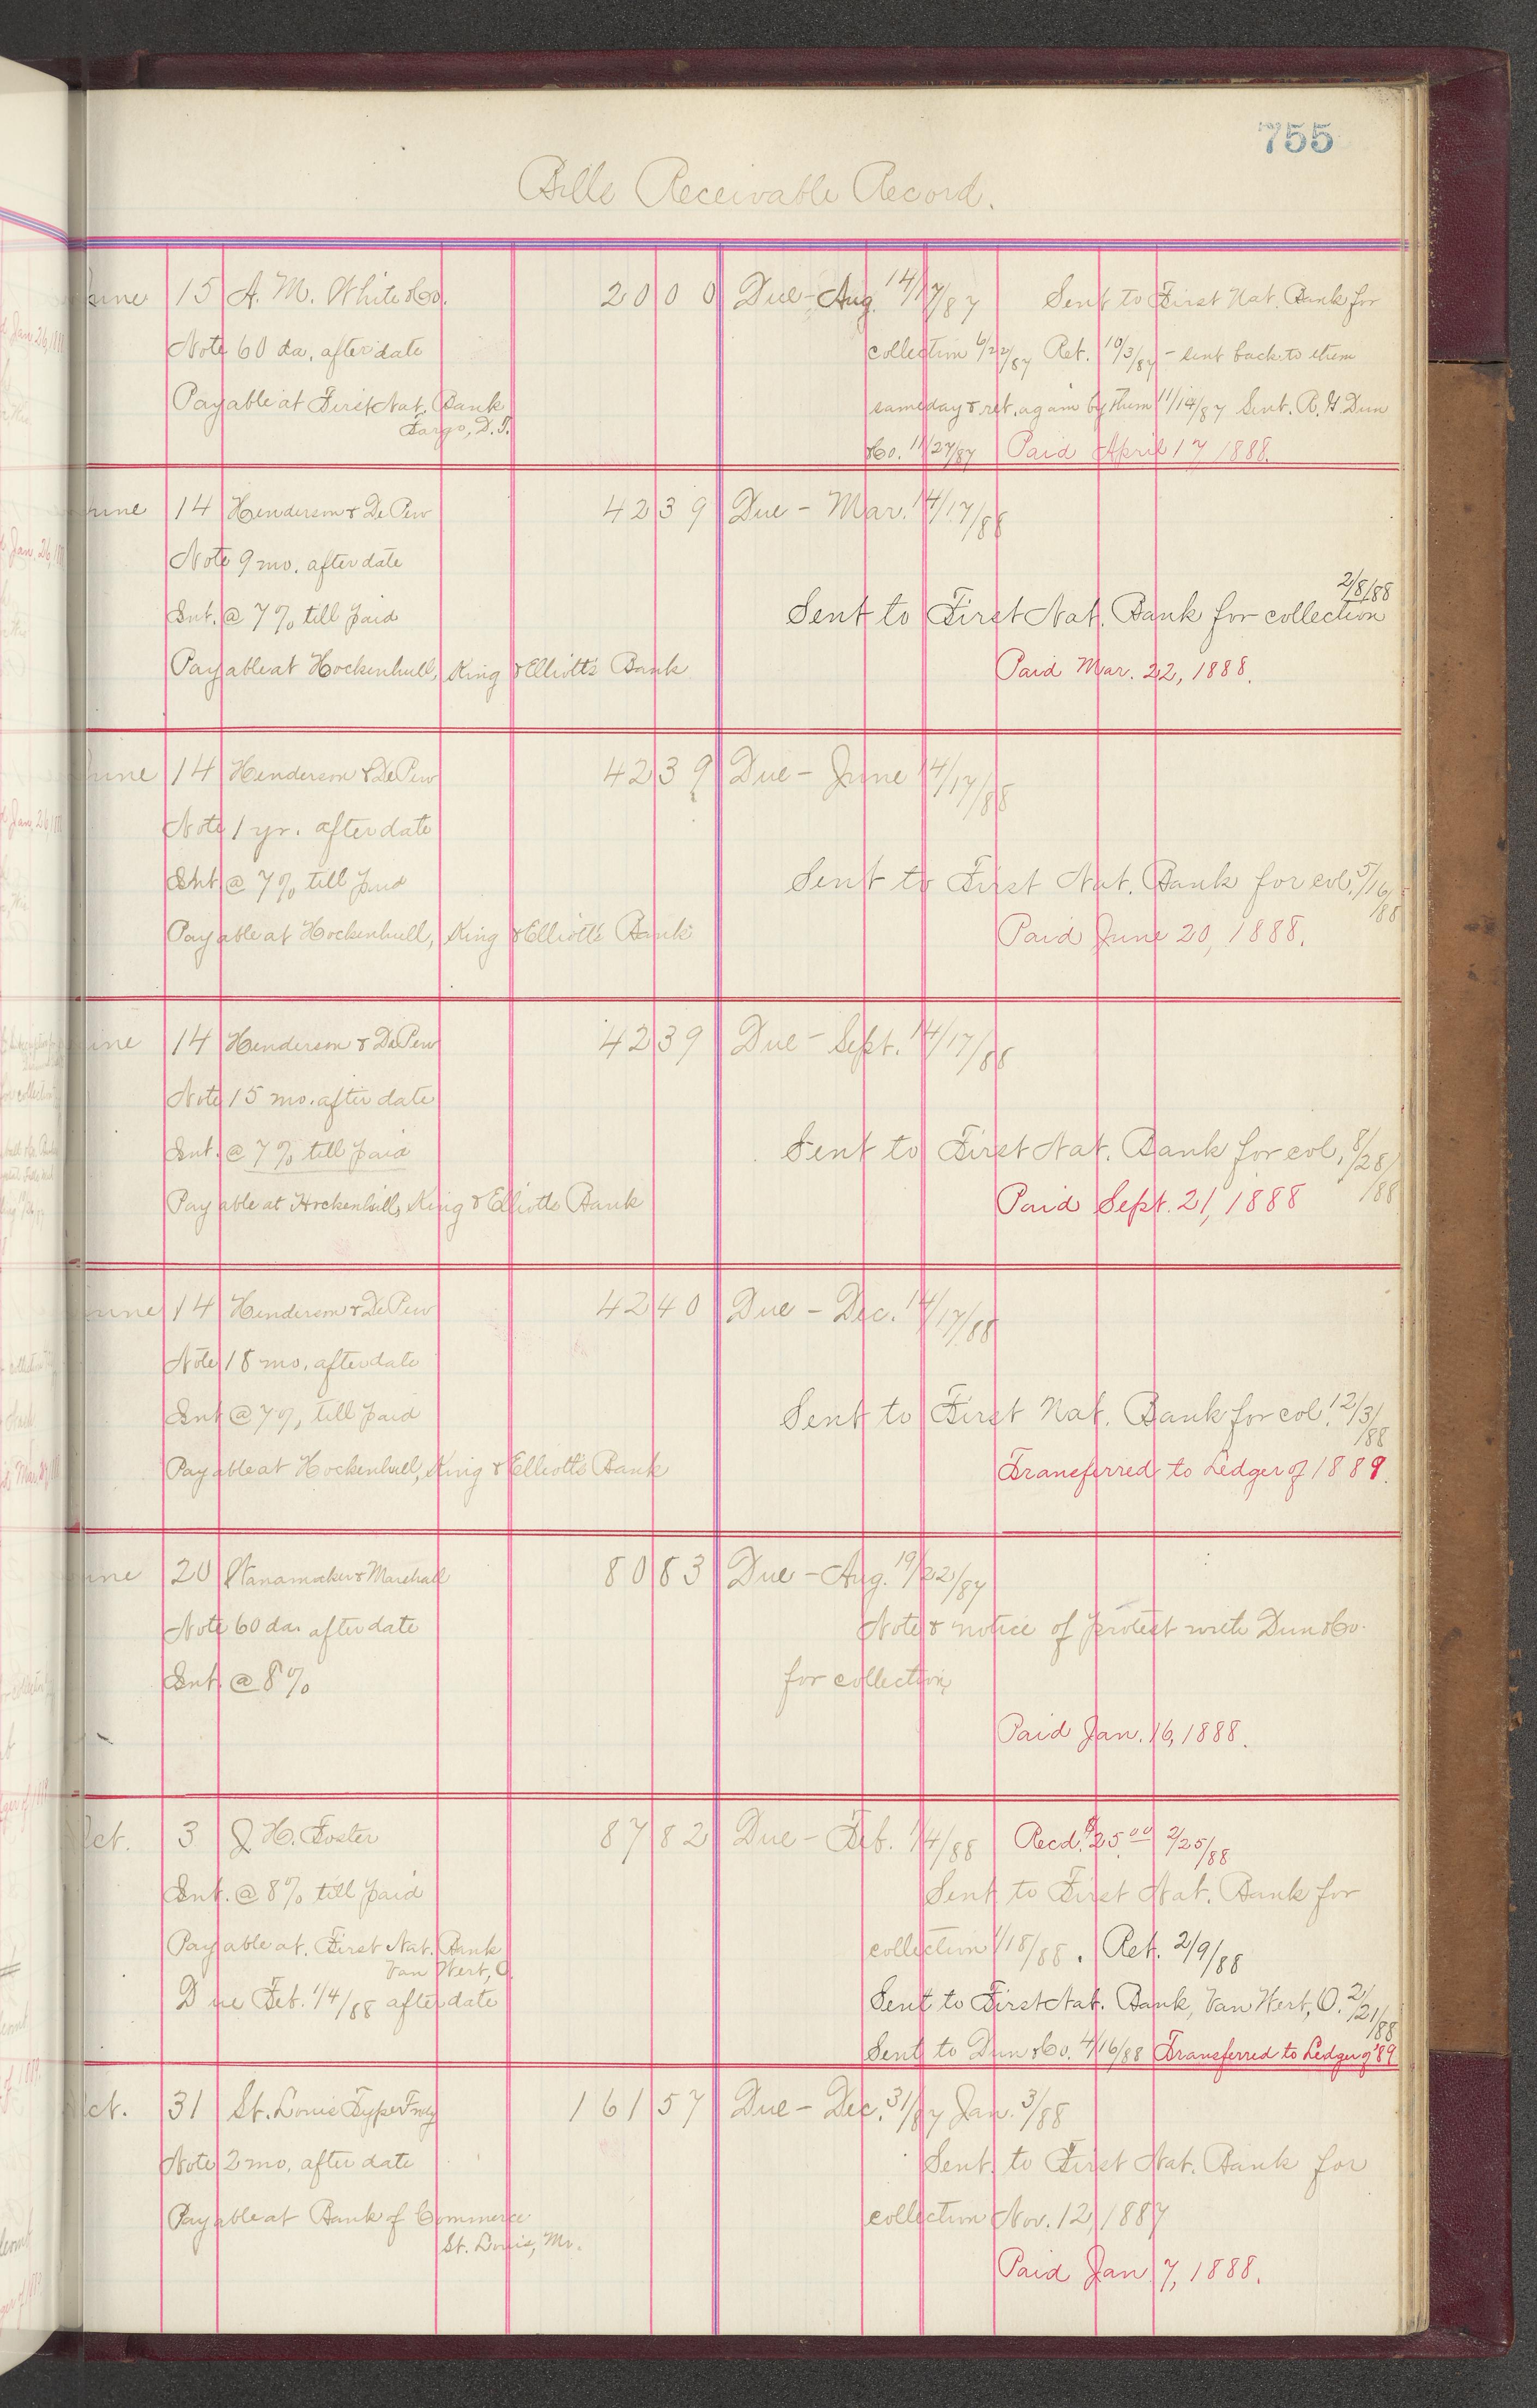 755
Bills Receivable Record.
June 15 A. M. White & Co. 20 00 Due - Aug. 14/17/87 Sent to First Nat. Bank for
Note 60 da. after date collection 6/22/87 Ret. 10/3/87 - sent back to them
Payable at First Nat. Bank same day & ret. again by them 11/14/87 Sent. R. G. Dun
Fargo, D.T.
& Co. 11/27/87 Paid April 17 1888.
June 14 Henderson & De Pew 42 39 Due - Mar. 14/17/88
Note 9 mo. after date
2/8/88
Int. @ 7% till paid Sent to First Nat. Bank for collection
Payable at Hockenhull, King & Elliott's Bank Paid Mar. 22, 1888.
June 14 Henderson & De Pew 42 39 Due - June 14/17/88
Note 1 yr. after date
Int @ 7% till paid Sent to First Nat. Bank for col. 5/16/88
Payable at Hockenhull, King & Elliott's Bank Paid June 20, 1888.
June 14 Henderson & De Pew 42 39 Due - Sept. 14/17/88
Note 15 mo. after date
Int. @ 7% till paid Sent to First Nat. Bank for col. 8/28/88
Payable at Hockenhull, King & Elliotts Bank Paid Sept. 21, 1888
June 14 Henderson & De Pew 42 40 Due - Dec. 14/17/88
Note 18 mo. after date
Int @ 7% till paid Sent to First Nat. Bank for col. 12/3/88
Payable at Hockenhull, King & Elliott's Bank Transferred to Ledger of 1889.
June 20 Wanamaker & Marshall 80 83 Due - Aug. 19/22/87
Note 60 da. after date Note & notice of protest with Dun & Co.
Int. @ 8% for collection
Paid Jan. 16, 1888.
Oct. 3 J. H. Foster 87 82 Due - Feb. 1/4/88 Recd. $25.00 2/25/88
Int. @ 8% till paid Sent to First Nat. Bank for
Payable at First Nat. Bank collection 1/18/88. Ret. 2/9/88
Van Wert, O.
Due Feb. 1/4/88 after date Sent to First Nat. Bank, Van Wert, O. 2/21/88
Sent to Dun & Co. 4/16/88 Transferred to Ledger of '89
Oct. 31 St. Louis Type Fndy 161 57 Due - Dec. 31/87 Jan. 3/88
Note 2 mo. after date Sent to First Nat. Bank for
Payable at Bank of Commerce collection Nov. 12, 1887
St. Louis, Mo.
Paid Jan 7, 1888.